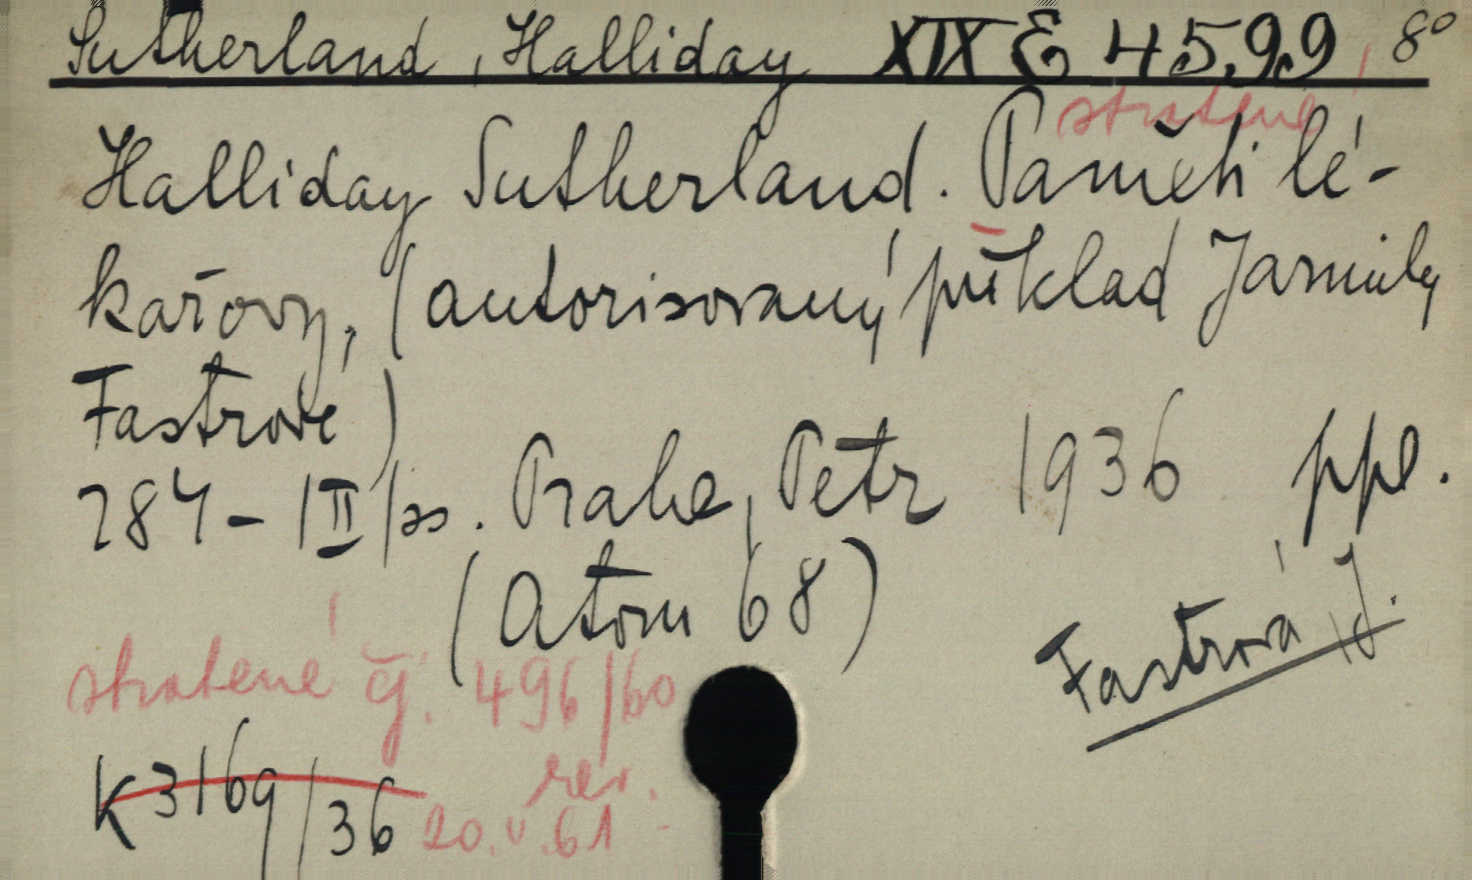 Sutherland, Halliday XIX E 4599, 8°
stratené
Halliday Sutherland. Paměti lé-
kařovy, (autorisovaný překlad Jarmily
Fastrové)
284-/II/ss. Praha, Petr 1936 ppl.
(Atom 68)
Fastrová J.
stratené čj. 496/60
K3169/36
rev.
20.V.61